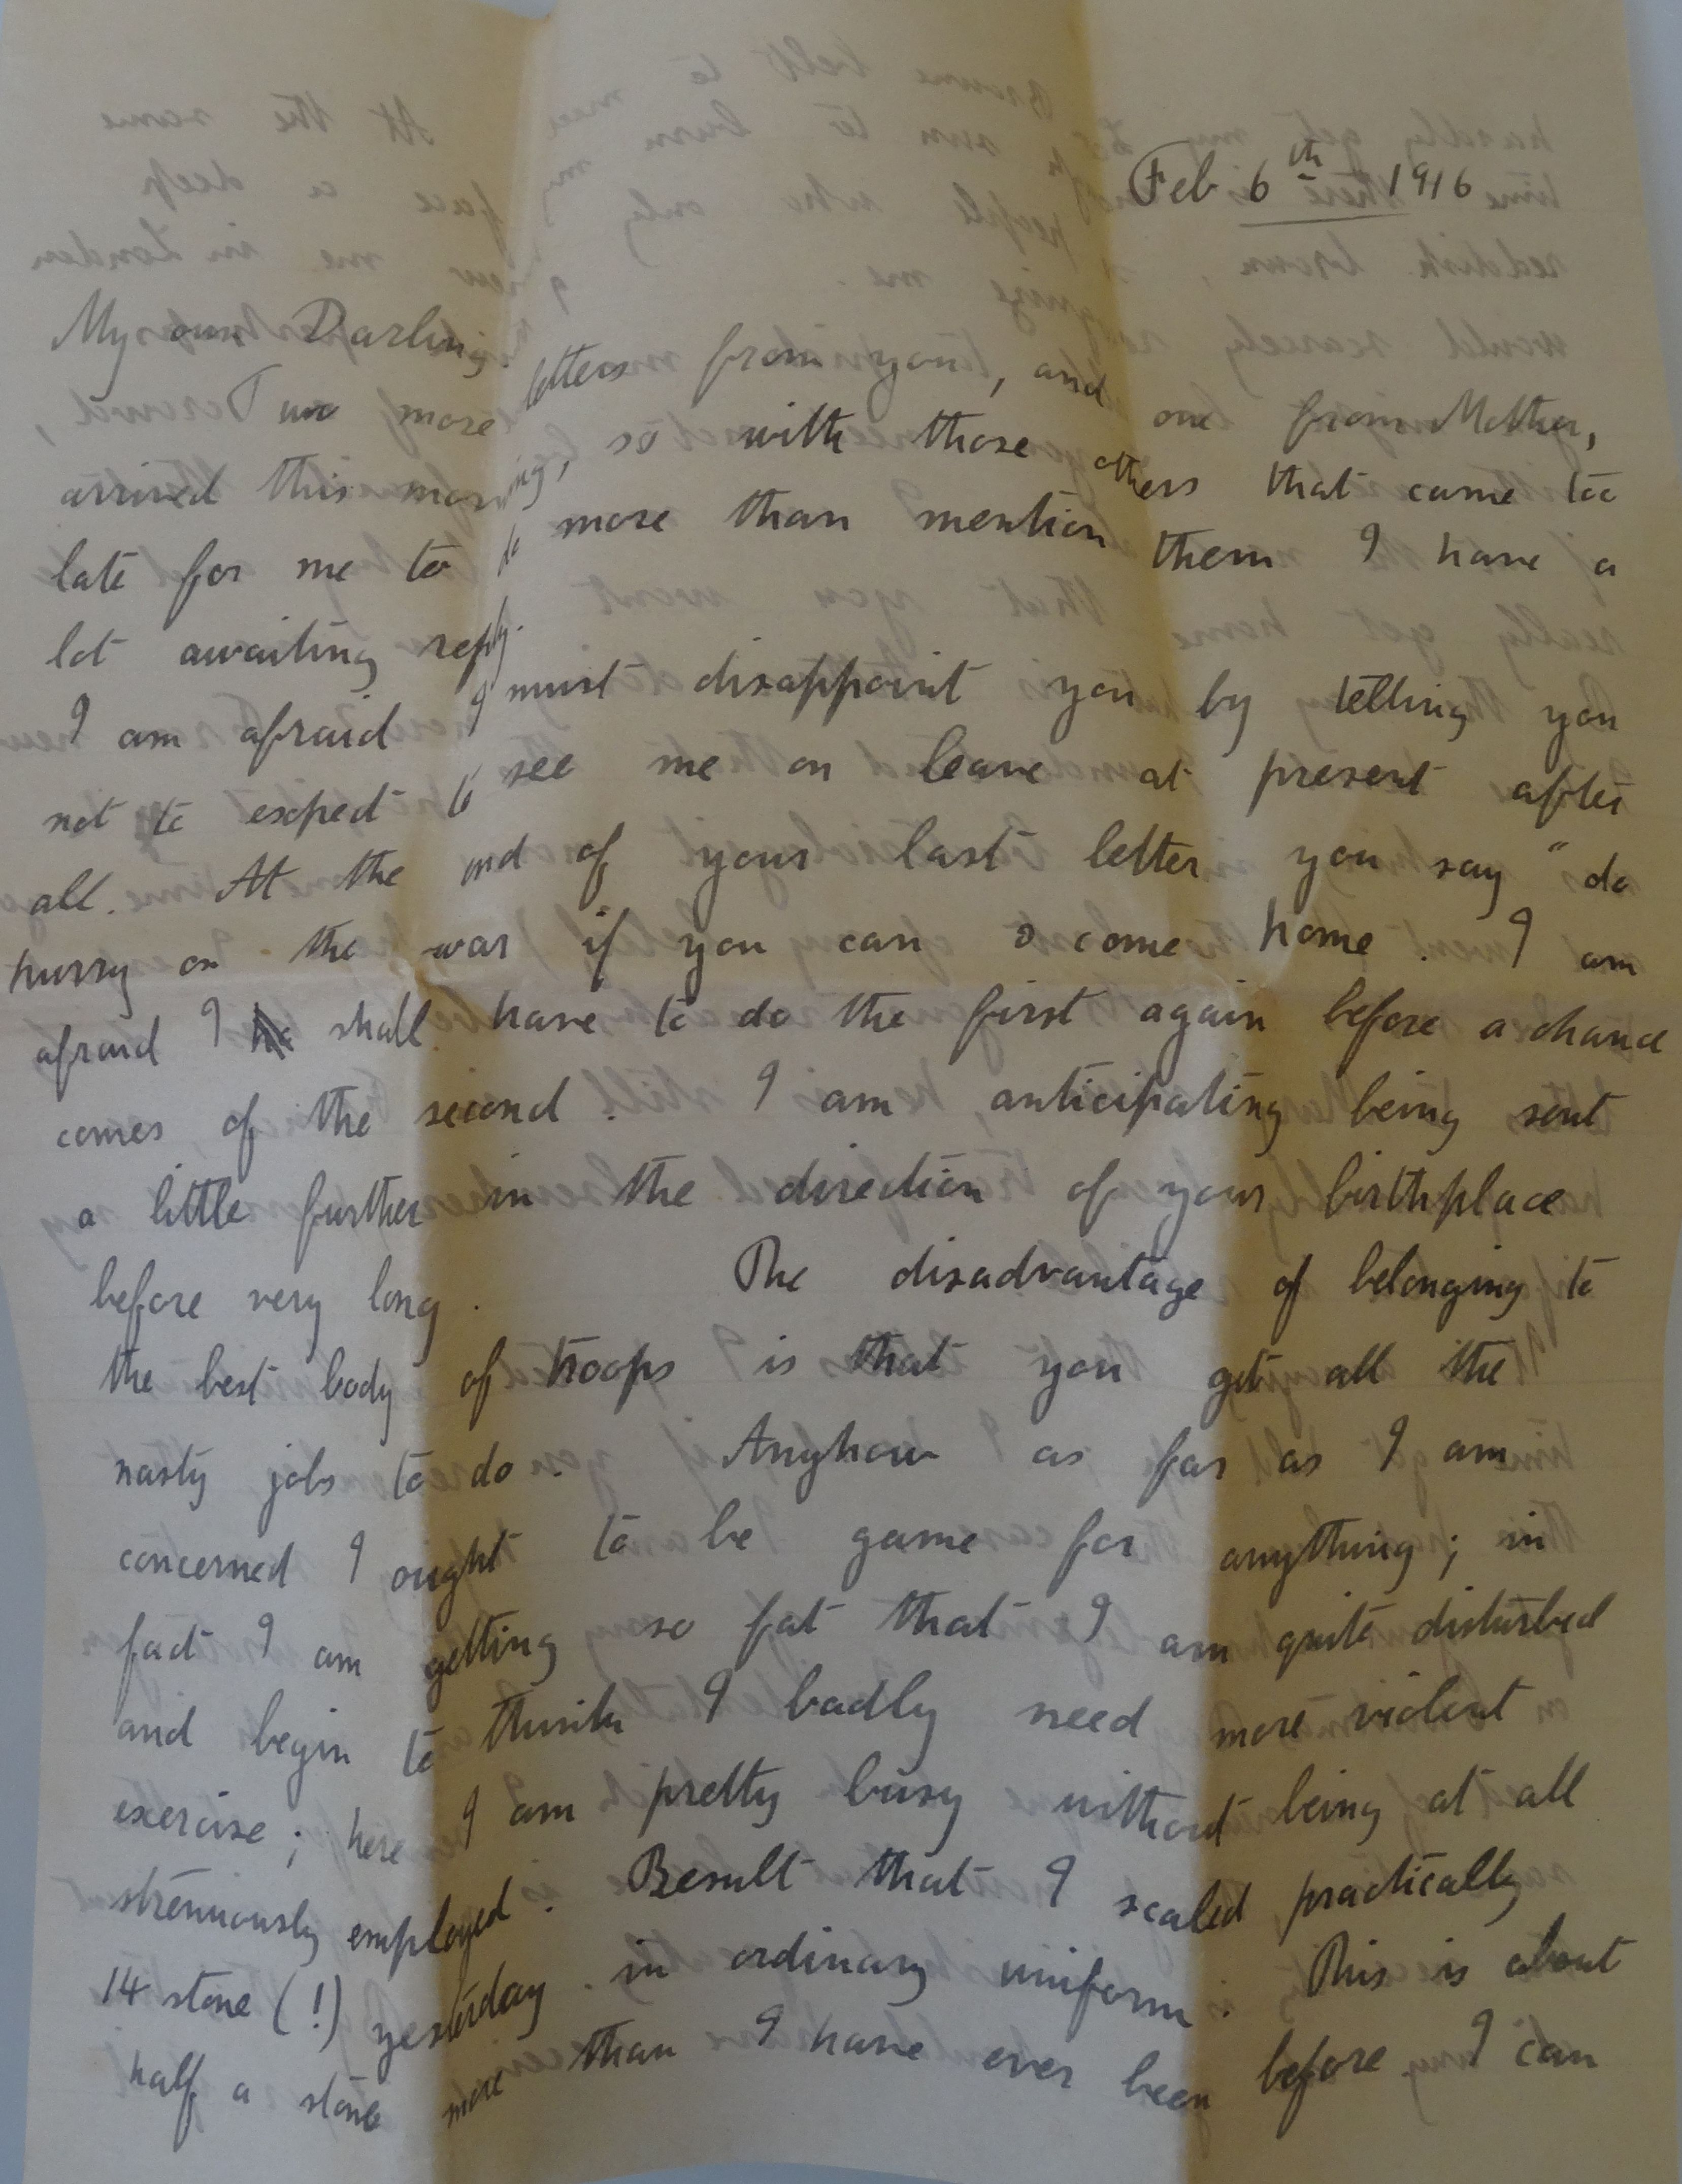 Feb 6th 1916
My own Darling
Two more letters from you, and one from Mother,
arrived this morning, so with those others that came too
late for me to do more than mention them I have a
lot awaiting reply.
I am afraid I must disappoint you by telling you
not to expect to see me on leave at present after
all. At the end of your last letter you say "do
hurry on the war if you can & come home. I am
afraid I shall have to do the first again before a chance
comes of the second. I am anticipating being sent
a little further in the direction of your birthplace
before very long. The disadvantage of belonging to
the best body of troops is that you get all the
nasty jobs to do. Anyhow as far as I am
concerned I ought to be game for anything; in
fact I am getting so fat that I am quite disturbed
and begin to think I badly need more violent
exercise; here I am pretty busy without being at all
strenuously employed. Result that I scaled practically
14 stone (!) yesterday in ordinary uniform. This is about
half a stone more than I have ever been before. I can